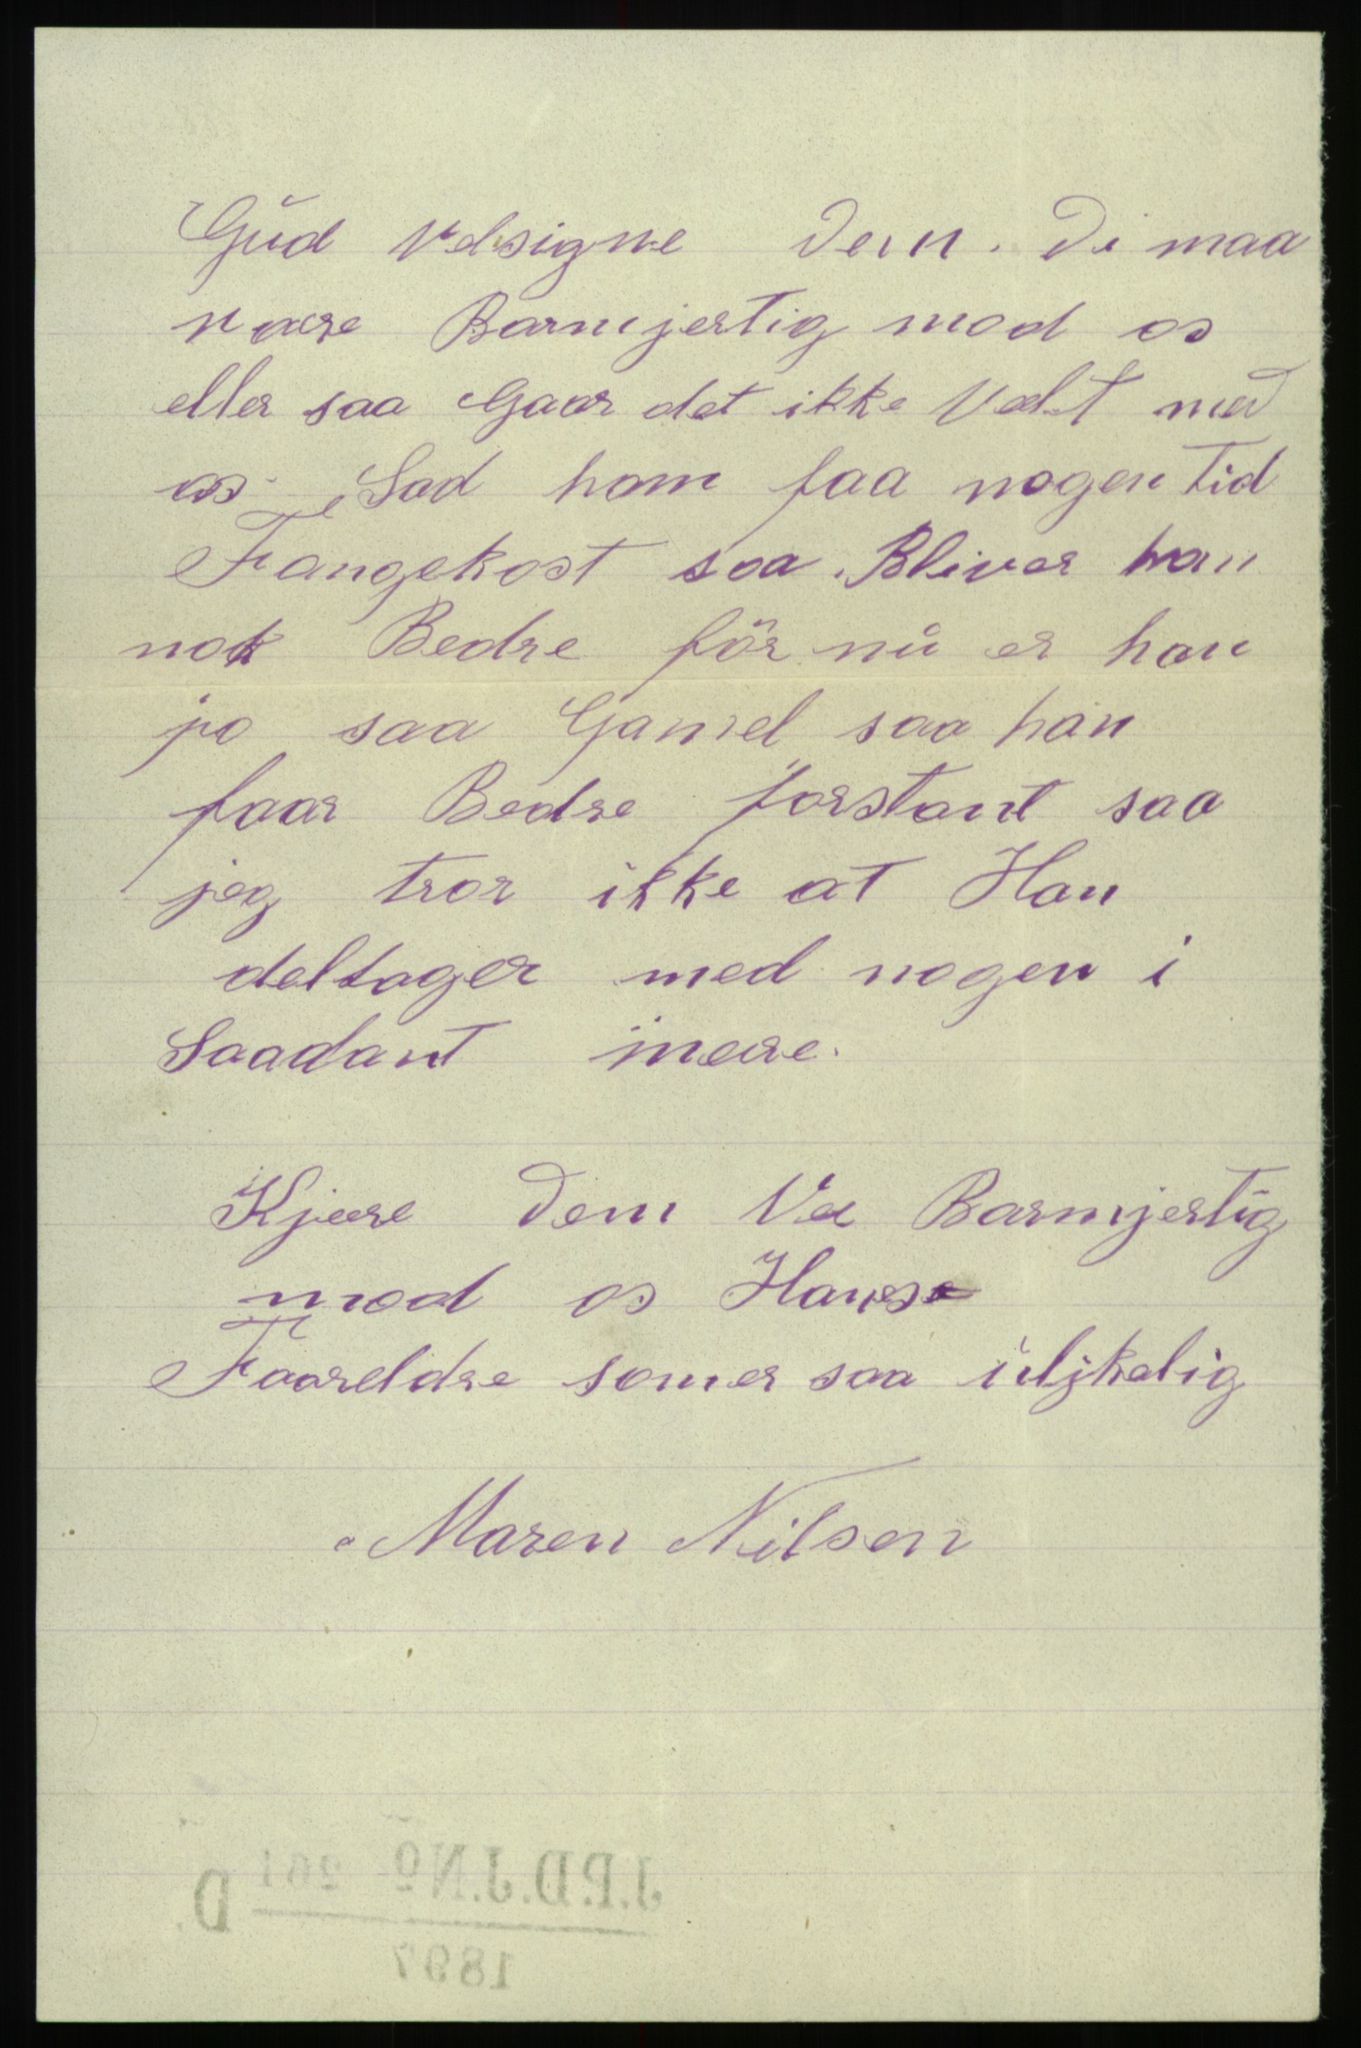 Gud Velsigne Dem. Di maa
være Barmjertig mod os
eller saa Gaar det ikke Vælt med
os. Lad ham faa nogen tid
Fangekost saa Bliver han
nok Bedre før nu er han
jo saa Gamel saa han
faar Bedre forstant saa
jeg tror ikke at Han
deltager med nogen i
Saadant mere.
Kjære Dem Væ Barmjertig
mod os Hanses
Faareldre somer saa uljkelig
Maren Nilsen
J.P.D.J.No 261 D.
1897